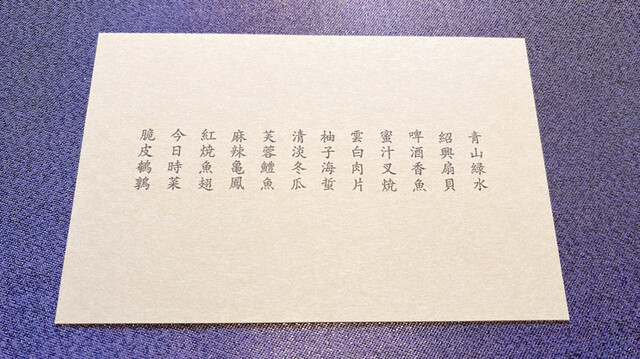 青山緑水
紹興扇貝
啤酒香魚
蜜汁叉焼
雲白肉片
柚子海蜇
清淡冬瓜
芙蓉鱧魚
麻辣亀鳳
紅焼魚翅
今日時菜
脆皮鵪鶉